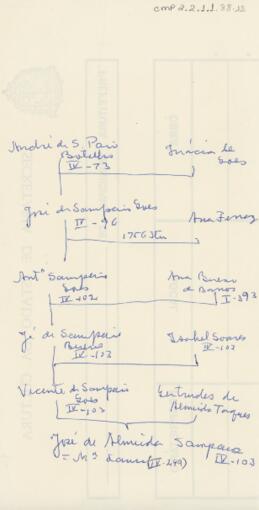 CMP 2.2.1.1.88.12
André de S. Paio
Botelho
IV-73
Inácia de
Goes
José de Sampaio Goes
IV-96
Ana Ferraz
1756 Itu
Antº Sampaio
Goes
IV-102
Ana Bueno
de Barros
I-393
Jé de Sampaio
IV-103
Isabel Soares
IV-103
Vicente de Sampaio
Goes
IV-103
Gertrudes de
Almeida Taques
José de Almeida Sampaio
= Mª (IV-249) IV-103